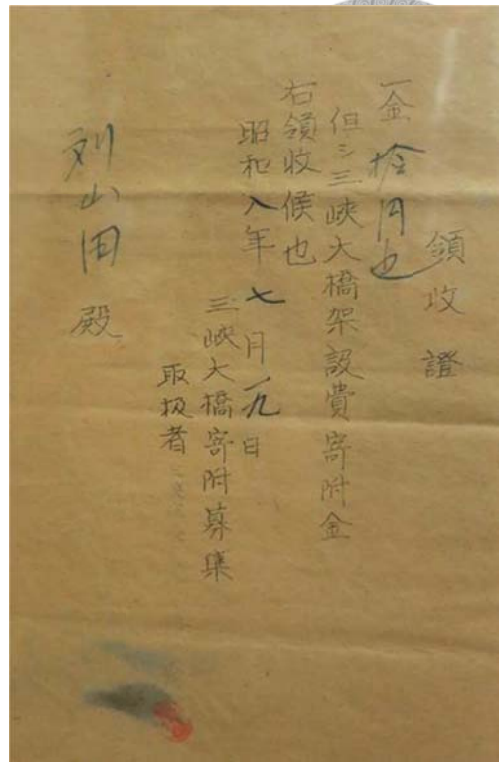 領收證
一金拾円也
但シ三峽大橋架設費寄附金
右領收候也
昭和八年七月一九日
三峽大橋寄附募集
取扱者
刘山田殿